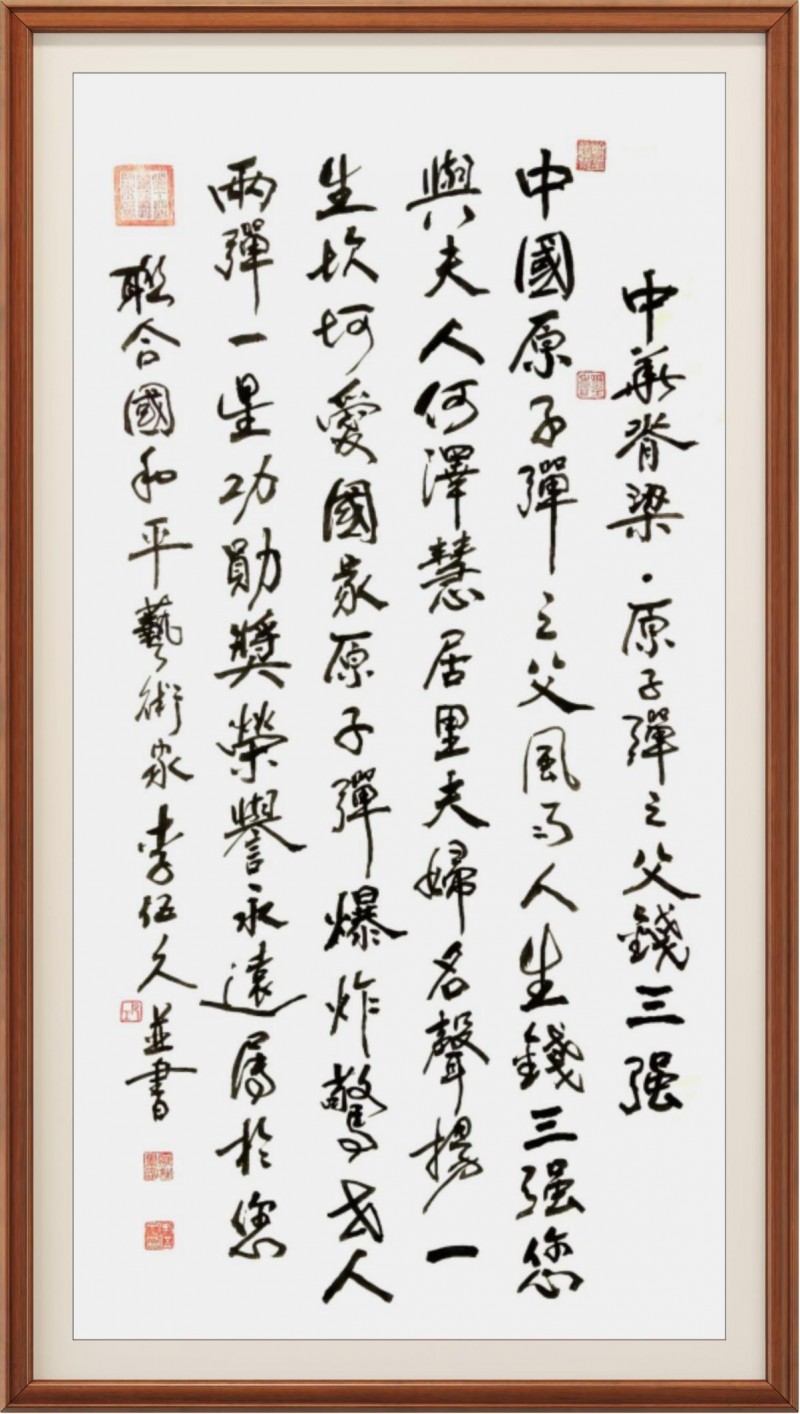 中華脊梁·原子彈之父錢三强
中國原子彈之父風雨人生錢三强您
與夫人何澤慧居里夫婦名聲揚一
生坎坷愛國家原子彈爆炸驚世人
兩彈一星功勛獎榮譽永遠屬於您
聯合國和平藝術家李伍久並書